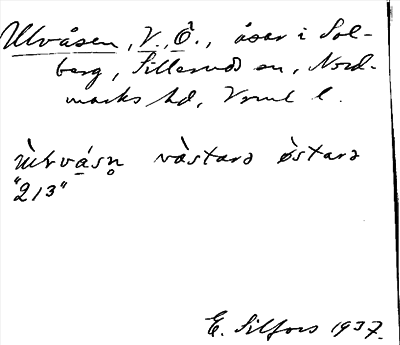 Ulvåsen, V., Ö., åsar i Sol-
berg, Silleruds sn, Nord-
marks hd, Vrml l.
vàstarə østarə
"213"
E. Silfors 1937.